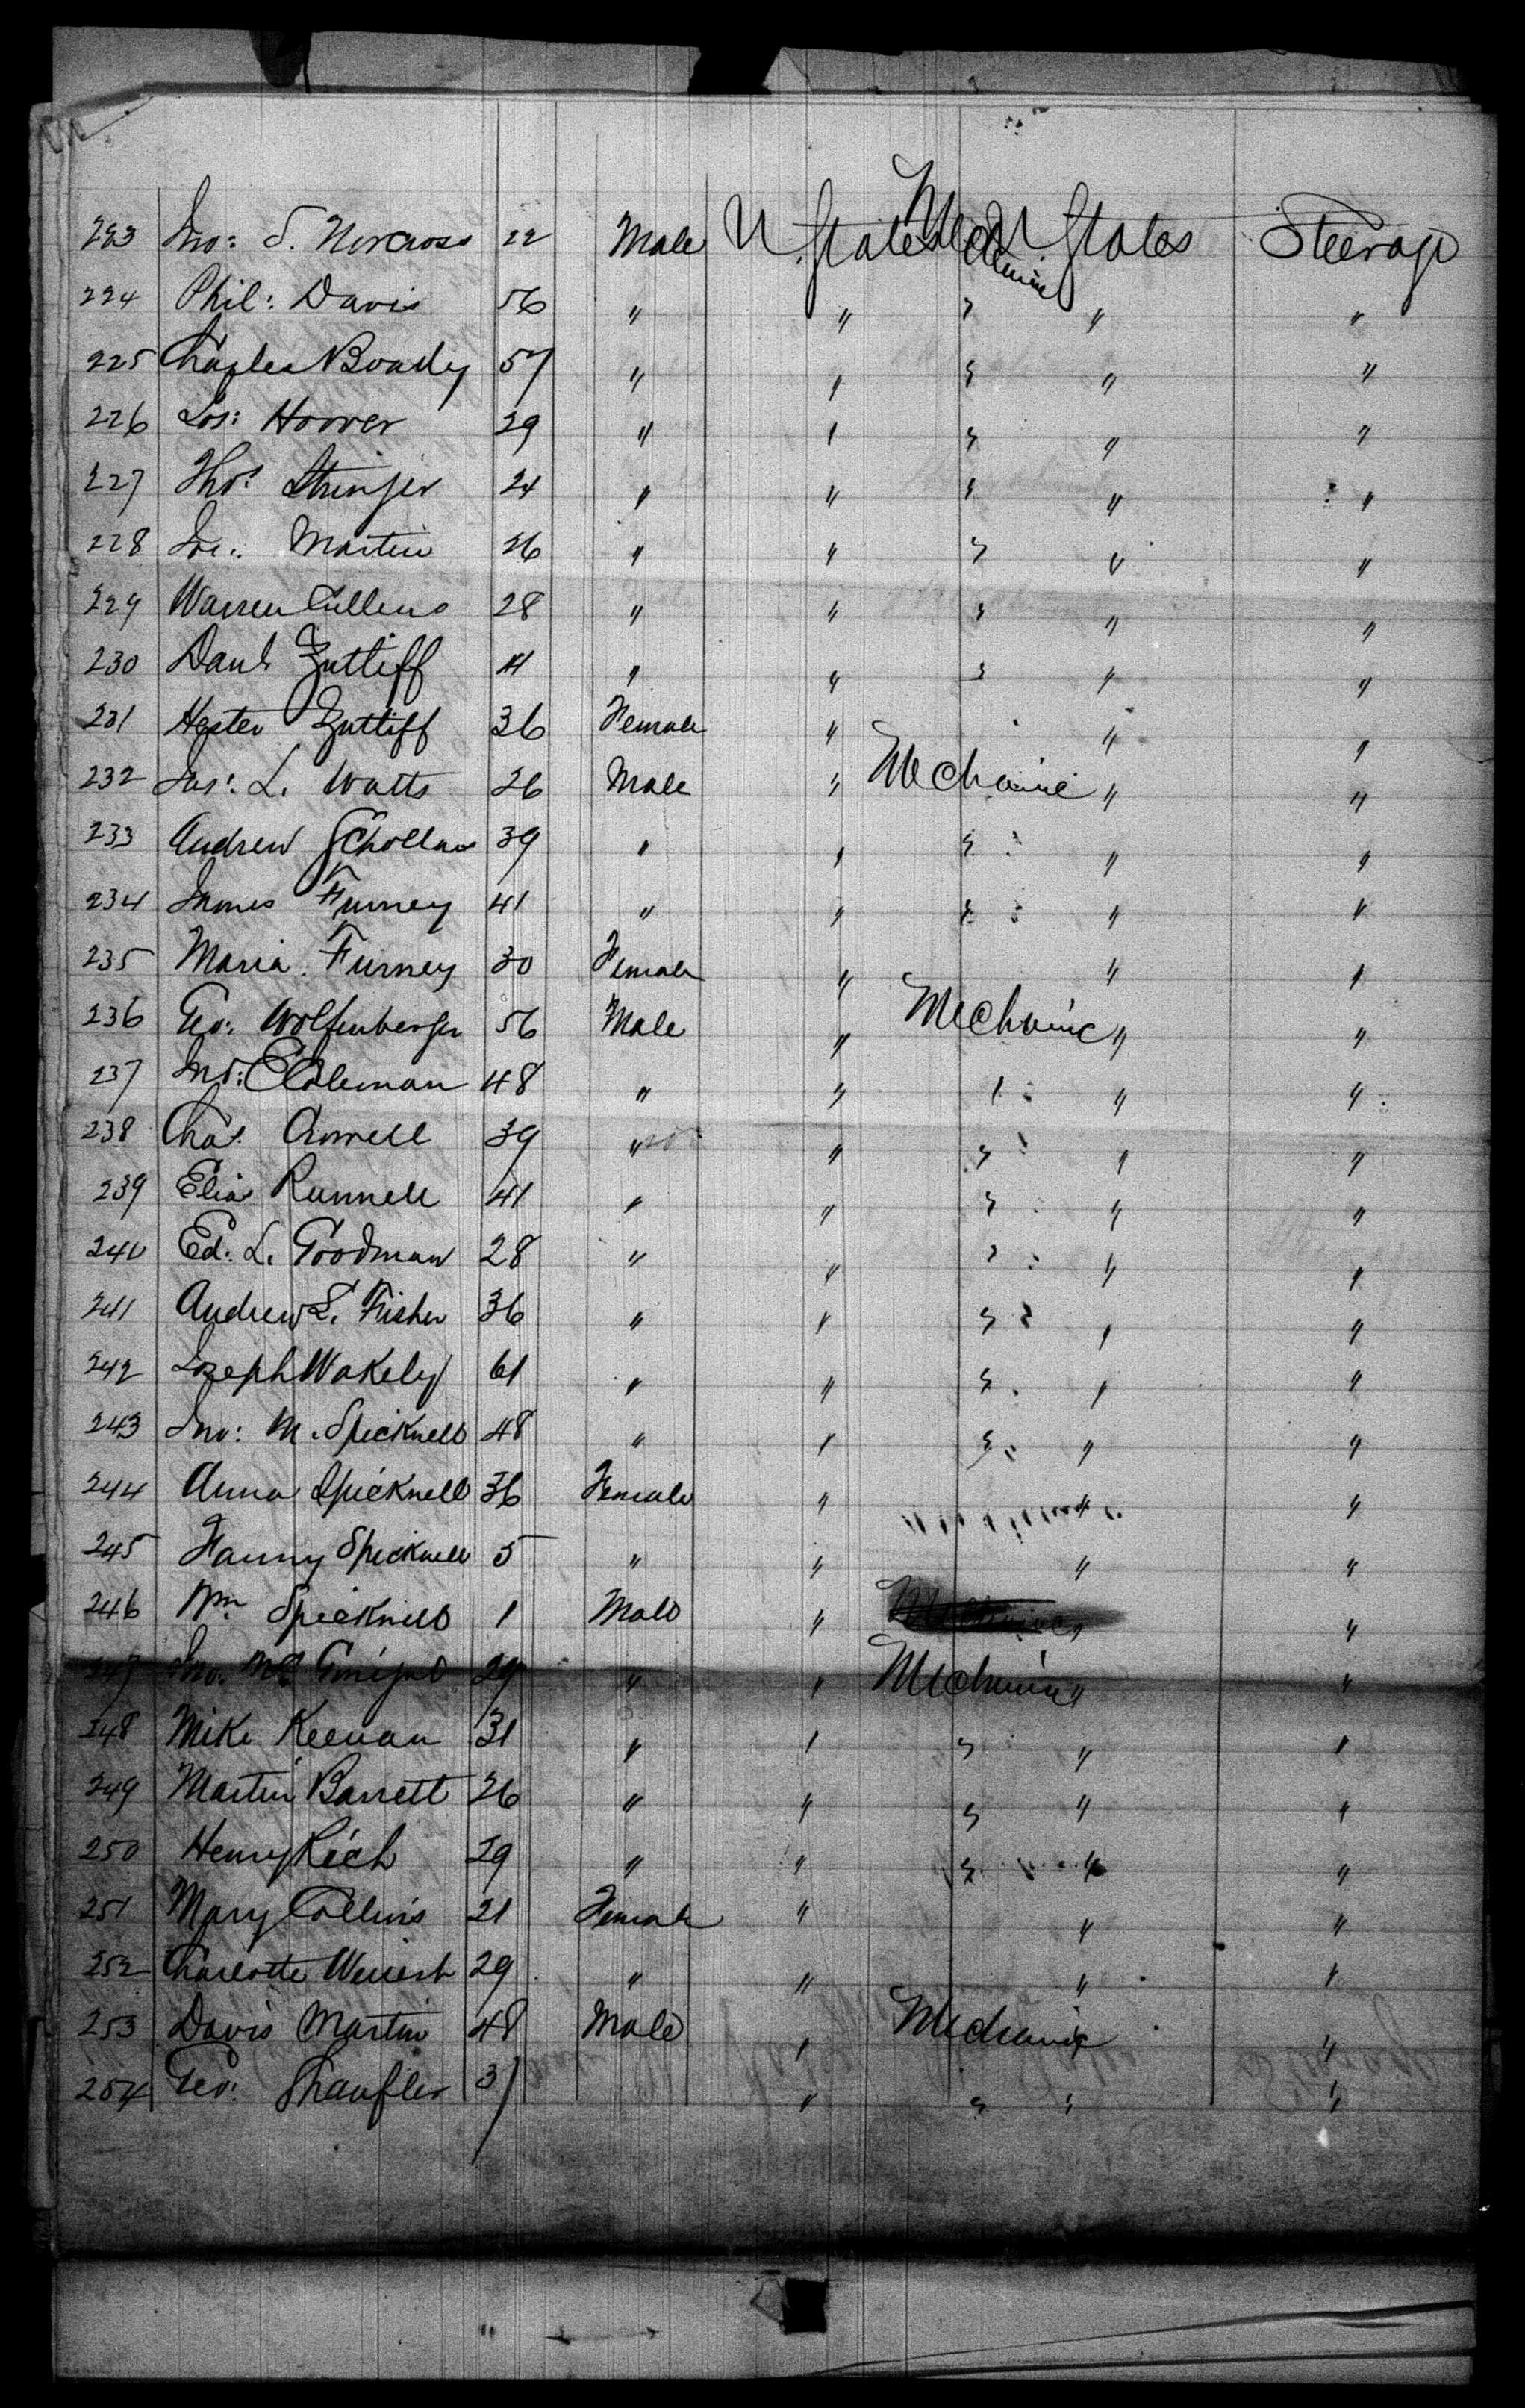 223 Jno: S. Norcross 22 Male U. States Mechanic U States Steerage
224 Phil: Davis 56 " " " " "
225 Charles Boady 57 " " " " "
226 Jos: Hoover 29 " " " " "
227 Thos. Stringer 24 " " " " "
228 Martin 26 " " " " "
229 Warren Cullens 28 " " " " "
230 Danl. Zutliff 41 " " " " "
231 Hester Zutliff 36 Female " " "
232 Jas: L. Watts 26 Male " Mechanic " "
233 Andrew 39 " " " " "
234 James Furney 41 " " " " "
235 Maria Furney 30 Female " " "
236 Geo: Wolfenberger 56 Male " Mechanic " "
237 Jno: C Coleman 48 " " " " "
238 Chas. 39 " " " " "
239 Elias Runnell 41 " " " " "
240 Ed: L. Goodman 28 " " " " "
241 Andrew L. Fisher 36 " " " " "
242 Joseph Wakely 61 " " " " "
243 Jno: M. Spicknell 48 " " " " "
244 Anna Spicknell 36 Female " " "
245 Fanny Spicknell 5 " " " "
246 Wm Spicknell 1 Male " " "
247 Jno. 29 " " Mechanic " "
248 Mike Keenan 31 " " " " "
249 Martin Barrett 26 " " " " "
250 Henry Rich 29 " " " " "
251 Mary Collins 21 Female " " "
252 Charlotte 29 " " " "
253 Davis Martin 48 Male " Mechanic " "
254 Geo: Shaufler 37 " " " "